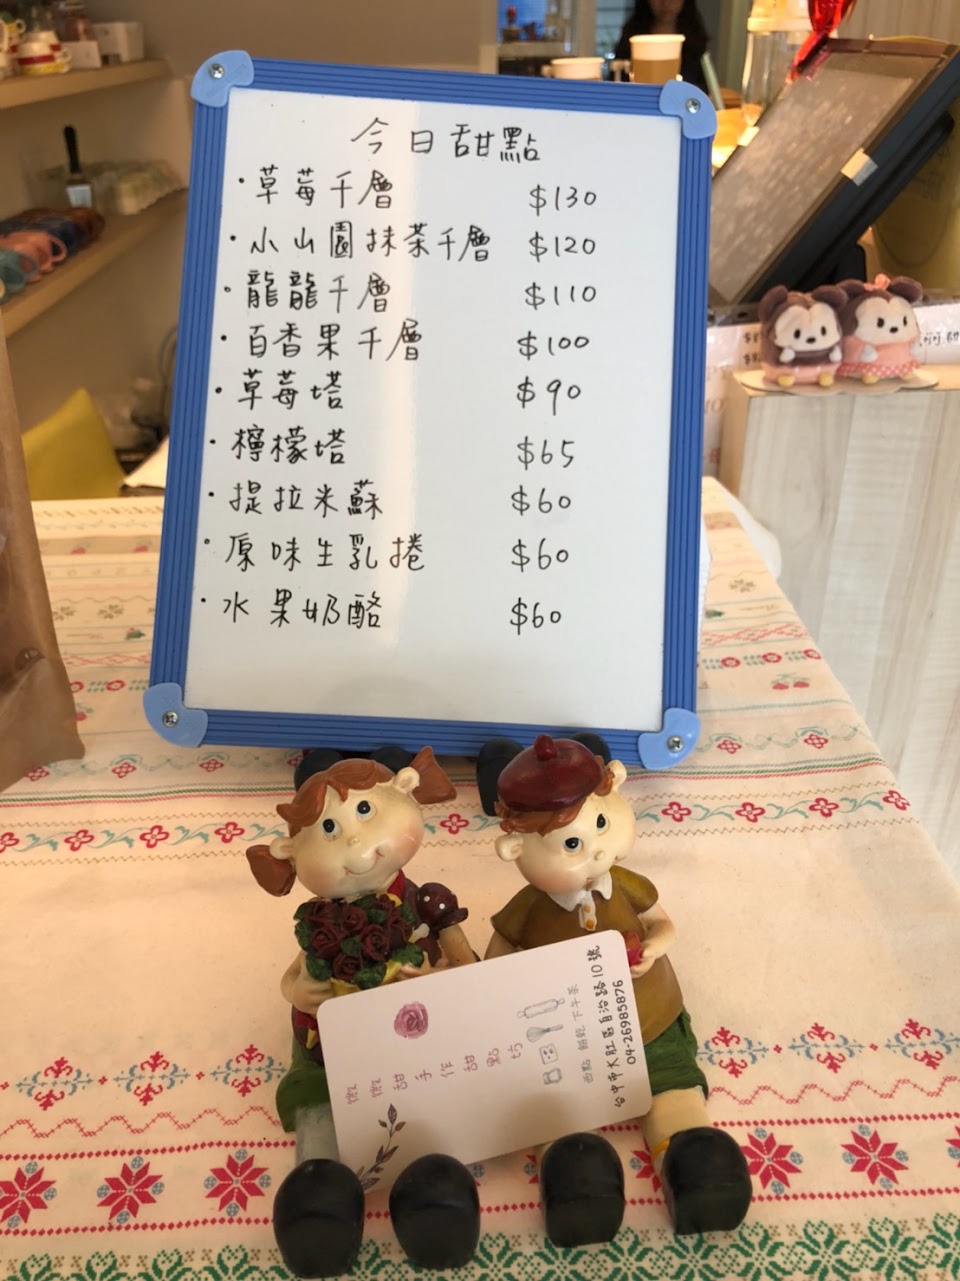 今日甜點
·草莓千層 $130
·小山園抹茶千層 $120
·龍龍千層 $110
·百香果千層 $100
·草莓塔 $90
·檸檬塔 $65
·提拉米蘇 $60
·原味生乳捲 $60
·水果奶酪 $60
微微甜手作甜點坊
西點 餅乾 下午茶
台中市大肚區自治路10號
04-26985876